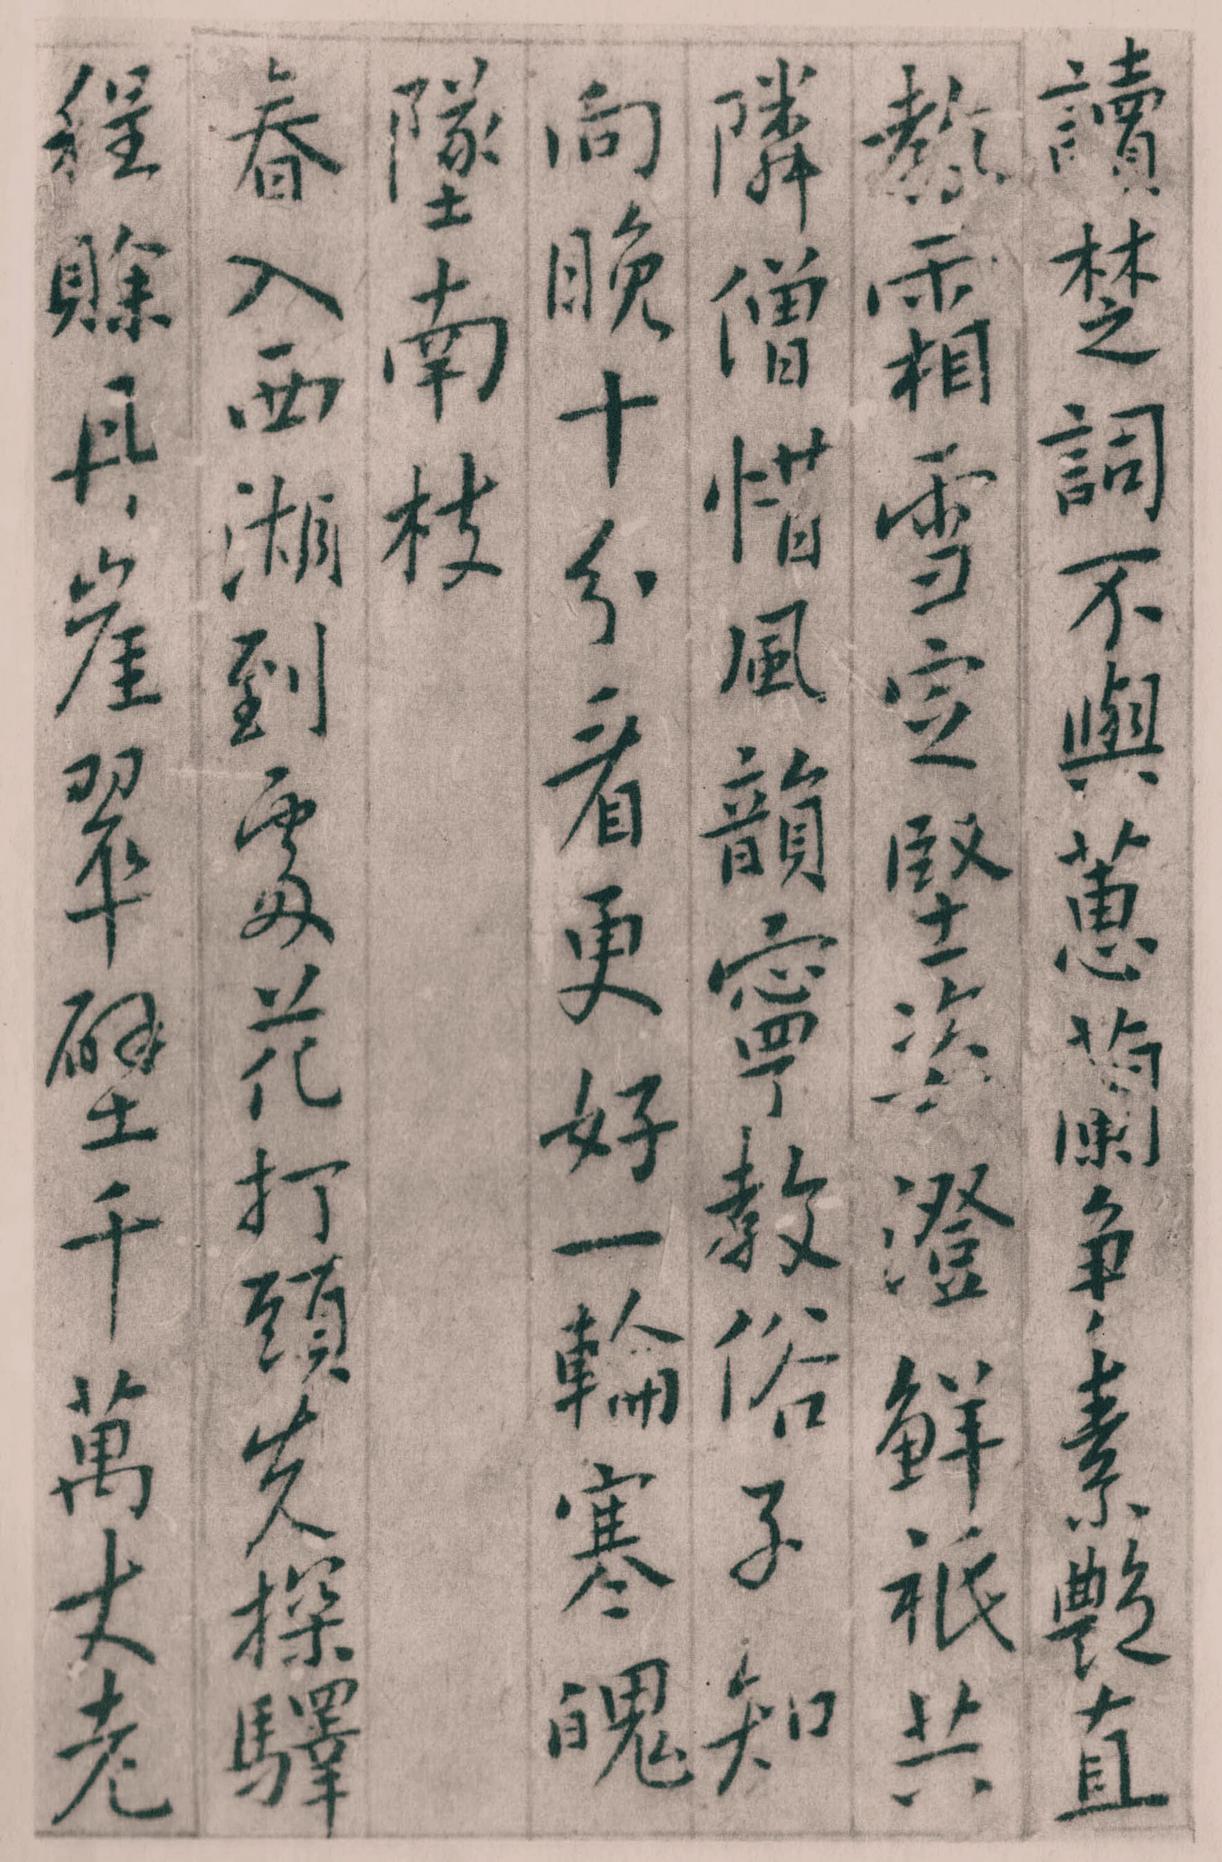 讀楚詞不與蕙蘭爭素艷直
熬霜雪定堅姿澄鮮祇共
隣僧惜風韻寧教俗子知
向晚十分看更好一輪寒魄
墜南枝
春入西湖到處花打頭先探驛
程賒丹崖翠壁千萬丈老